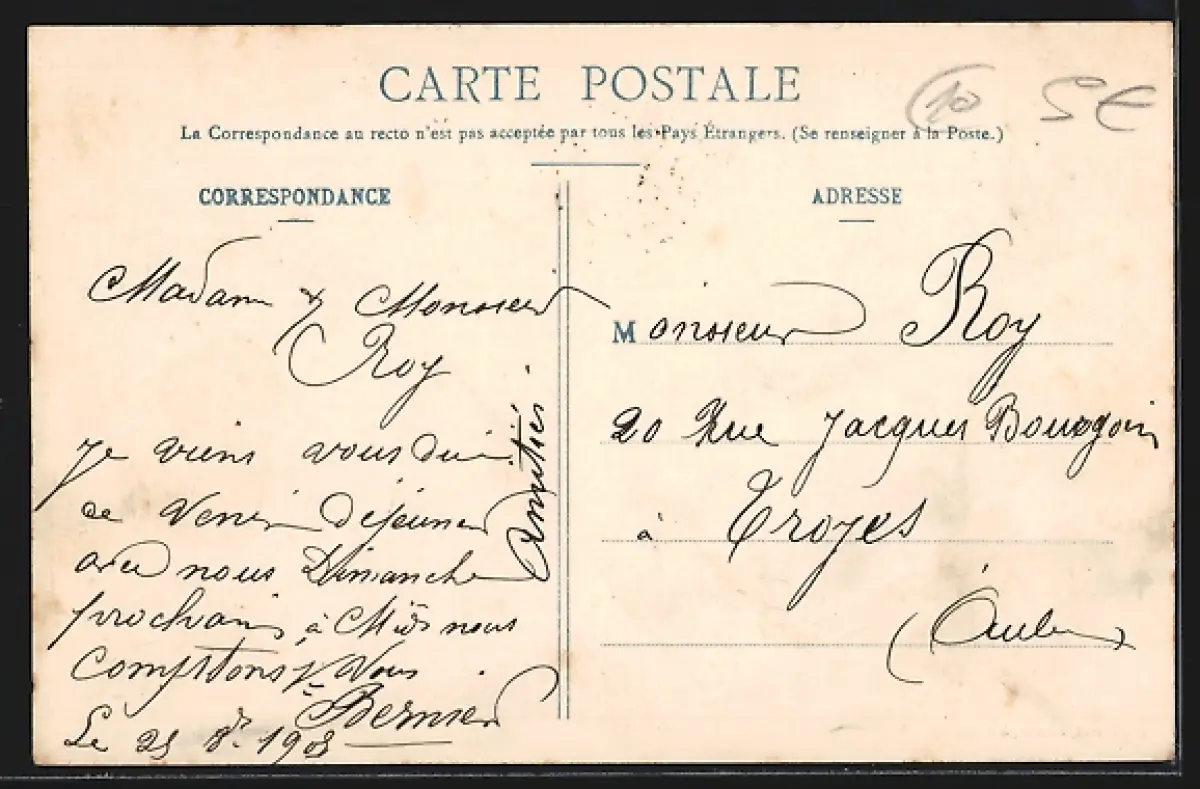 CARTE POSTALE
10 5 €
La Correspondance au recto n'est pas acceptée par tous les Pays Étrangers. (Se renseigner à la Poste.)
CORRESPONDANCE
Madame & Monsieur
Roy
Je viens vous dire
de venir Déjeuner
avec nous Dimanche
prochain à Midi nous
Comptons s/ Vous
Bernier
Le 25 8bre 1908
Amitiés
ADRESSE
Monsieur Roy
20 Rue Jacques Bourgoin
à Troyes
(Aube)